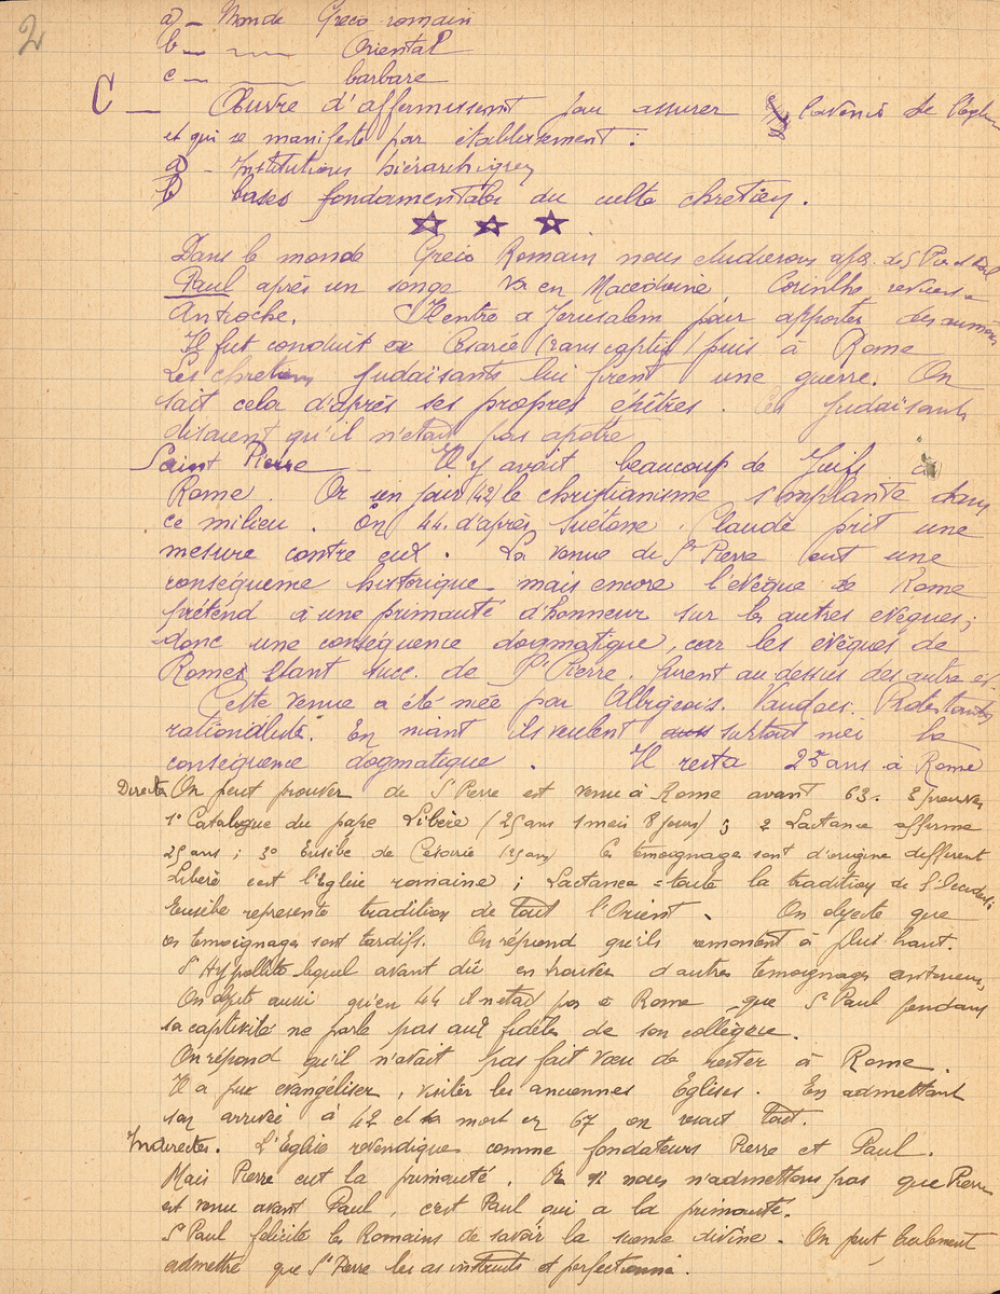 2
a) - Monde Greco romain
b - — Oriental
c - — barbare
C — Œuvre d'affermissement pour assurer l'avenir de l'Eglise
et qui se manifeste par établissement :
a - Institutions hiérarchiques
b bases fondamentales du culte chretien.
Dans le monde Greco Romain nous étudierons apos. de S Pier et Paul
Paul après un songe va en Macedoine, Corinthe revient
Antioche. Rentre a Jerusalem pour apporter des aumônes
Il fut conduit a Cesarie (2 ans captif) puis à Rome
Les chretiens Judaïsants lui firent une guerre. On
sait cela d'après ses propres épîtres. Ces Judaïsants
disaient qu'il n'etait pas apotre
Saint Pierre — Il y avait beaucoup de Juifs à
Rome. Or un jour (42) le christianisme s'implante dans
ce milieu. En 44. d'après Suétone. Claude prit une
mesure contre eux. La venue de St Pierre eut une
conséquence historique mais encore l'évêque de Rome
prétend à une primauté d'honneur sur les autres evêques ;
donc une conséquence dogmatique, car les évêques de
Rome étant succ. de St Pierre. furent au dessus des autre ev.
Cette venue a été niée par Albigeois. Vaudois. Protestants
rationaliste. En niant ils veulent surtout nier la
conséquence dogmatique. Il resta 25 ans à Rome
Directes On peut prouver de S Pierre est venu à Rome avant 63. 3 preuves
1° Catalogue du pape Libère (25 ans 1 mois 8 jours) ; 2 Lactance affirme
25 ans ; 3° Eusèbe de Césarie (25 ans) Ces temoignages sont d'origine different
Libère c'est l'Eglise romaine ; Lactance = toute la tradition de l'Occident ;
Eusèbe represente tradition de tout l'Orient. On objecte que
ces temoignages sont tardifs. On répond qu'ils remontent à plus haut.
S Hyppolite lequel avait dû en trouver d'autres temoignages anterieurs,
On objete aussi qu'en 44 il n'etait pas a Rome que S Paul pendant
sa captivité ne parle pas aux fidèles de son collègue.
On répond qu'il n'avait pas fait vœu de rester à Rome.
Il a pu evangéliser, visiter les anciennes Eglises. En admettant
son arrivée à 42 et sa mort en 67 on resout tout.
Indirectes. L'Eglise revendique comme fondateurs Pierre et Paul.
Mais Pierre eut la primauté. Or si nous n'admettons pas que Pierre
est venu avant Paul, c'est Paul qui a la primauté.
S Paul félicite les Romains de savoir la science divine. On peut seulement
admettre que St Pierre les as instruits et perfectionné.